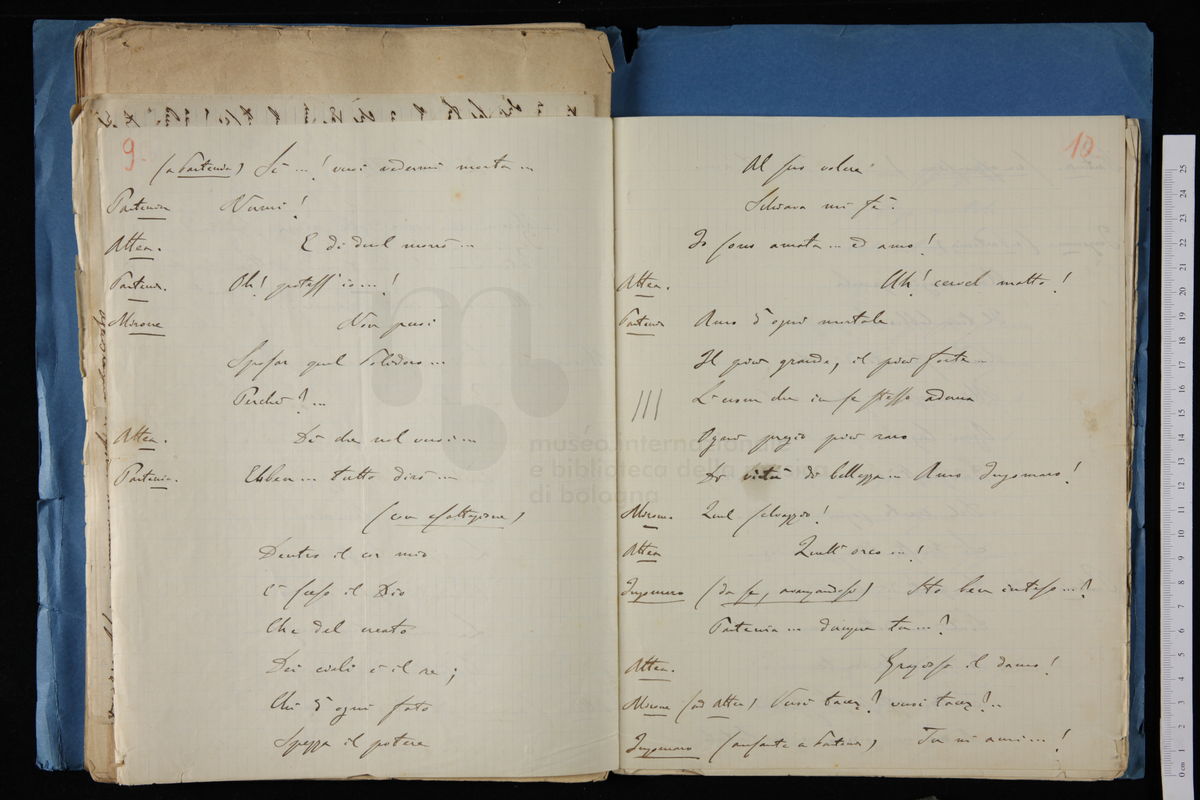 9.
(a Partenia) Sì ...! vuoi vedermi morta ...
Partenia Numi!
Attea. E di duol morrò ...
Parten. Oh! potess' io ...!
Mirone Non puoi
Sposar quel Polidoro ...
Perchè? ...
Attea. Di' che nol vuoi ...
Partenia. Ebben ... tutto dirò ...
(con esaltazione)
Dentro il cor mio
È sceso il Dio
Che del creato
Dei cieli è il re;
Chi d'ogni fato
Spezza il potere
10
Al suo volere
Schiava mi fè.
Io sono amata ... ed amo!
Attea. Uh! cervel matto!
Parteni Amo d'ogni mortale
Il più grande, il più forte
L'uom che in se stesso aduna
Ogni pregio più raro
Di virtù di bellezza ... Amo Ingomaro!
Mirone Quel selvaggio!
Attea Quell'orco ...!
Ingomaro (da se, avanzandosi) Ho ben inteso ...?
Partenia ... dunque tu ...?
Attea. Grazioso il damo!
Mirone (ad Attea) Vuoi tacer? vuoi tacer? ..
Ingomaro (ansante a Partenia) Tu mi ami ...!
museo internazionale
e biblioteca della musica
di bologna